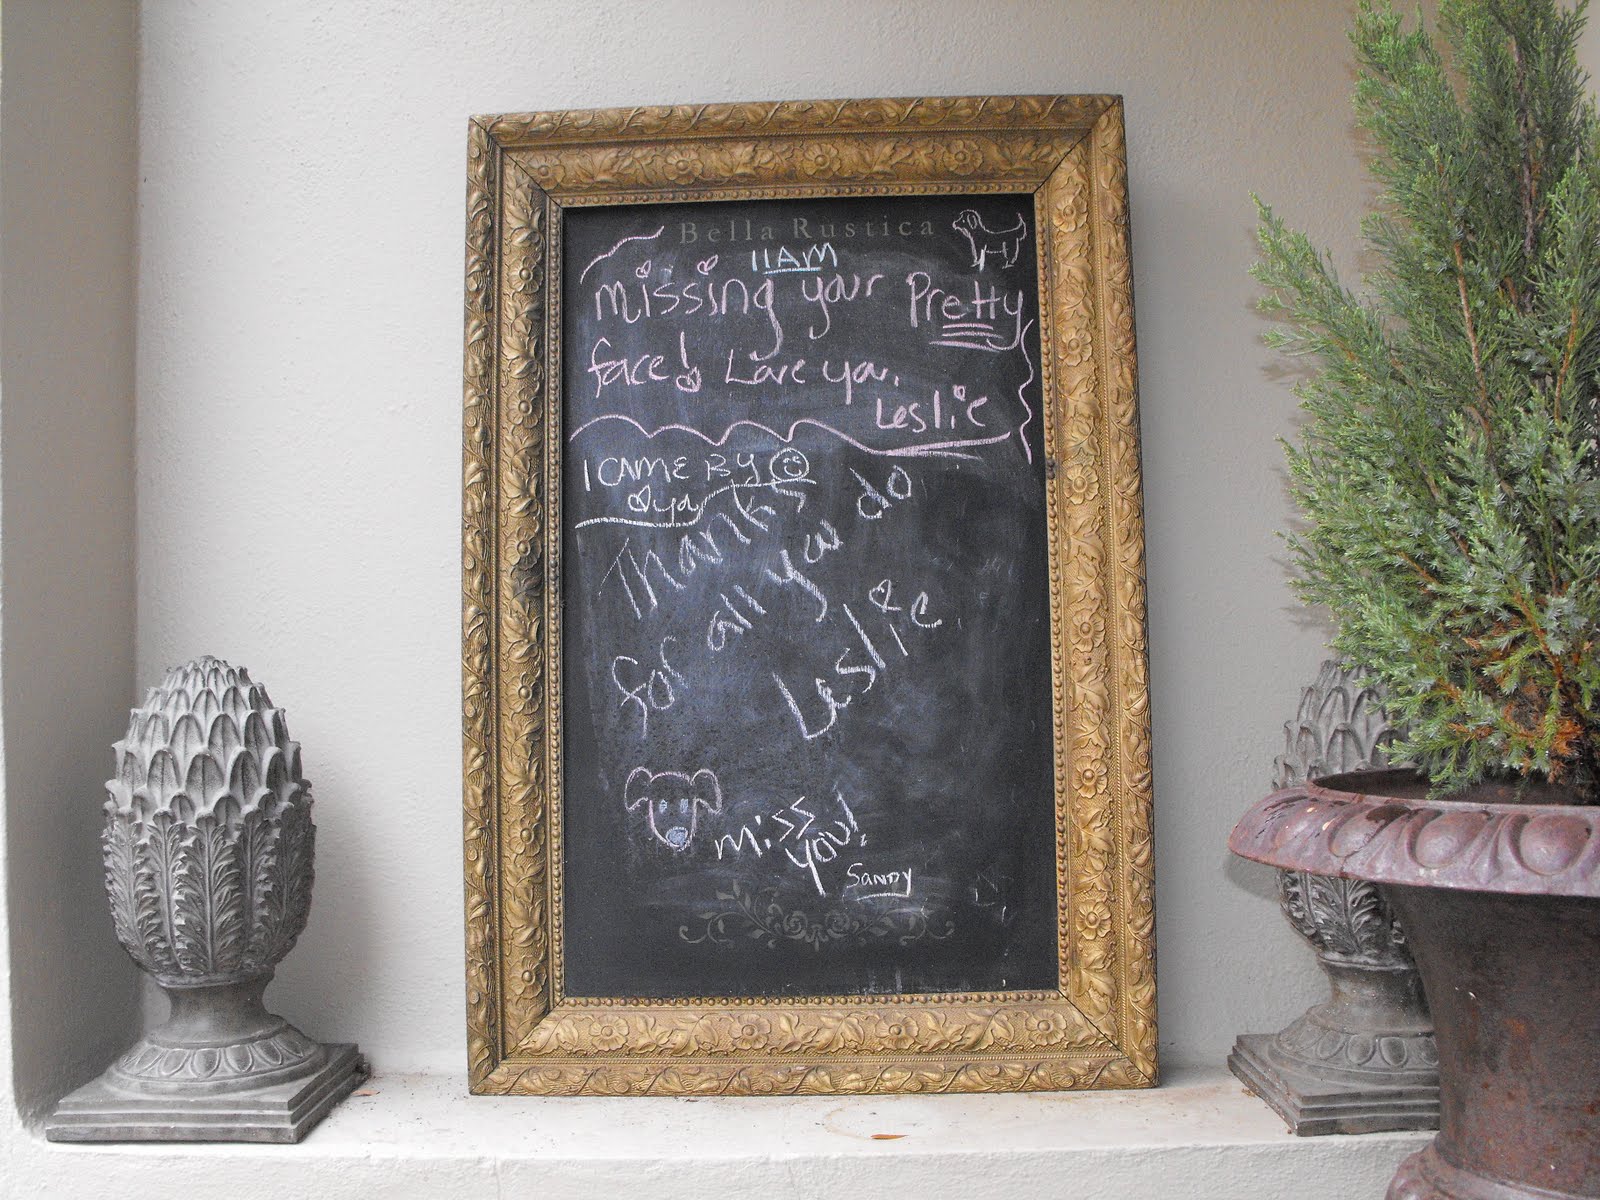 Bella Rustica
11AM
missing your Pretty
face! Love you,
Leslie
I CAME BY
ya
Thanks
for all you do
Leslie
miss
you!
SANDY